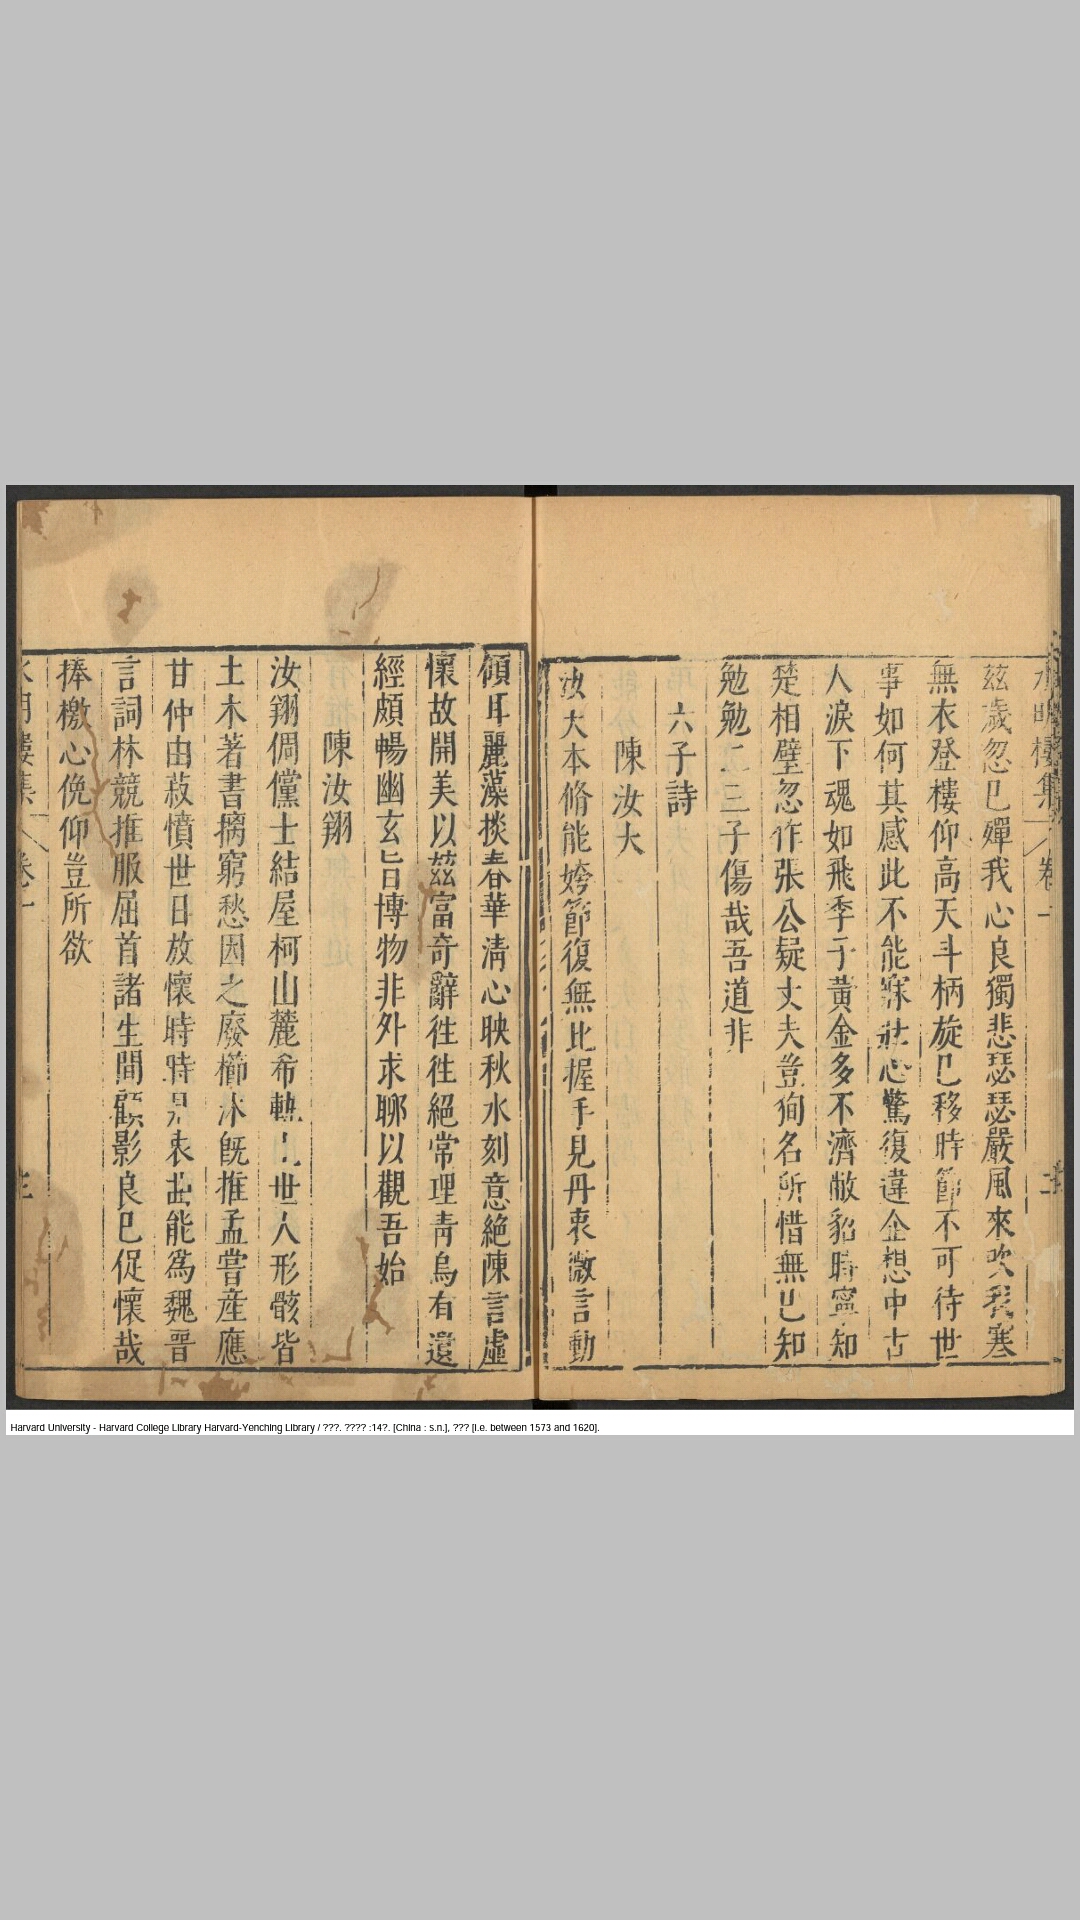 水明樓集 卷一
茲歲忽已殫我心良獨悲瑟瑟嚴風來吹我寒
無衣登樓仰高天斗柄旋已移時節不可待世
事如何其感此不能寐壯心驚復違企想中古
人淚下魂如飛季子黃金多不濟敝貂時寧知
楚相璧忽作張公疑丈夫豈狥名所惜無已知
勉勉二三子傷哉吾道非
六子詩
陳汝大
汝大本脩能姱節復無比握手見丹衷微言動
傾耳麗藻掞春華清心映秋水刻意絕陳言虛
懷故開美以茲富奇辭徃徃絕常理靑烏有遺
經頗暢幽玄旨博物非外求聊以觀吾始
陳汝翔
汝翔倜儻士結屋柯山麓希軌世人形骸皆
土木著書摛窮愁因之廢櫛沐旣推孟嘗産應
甘仲由菽憤世日放懷時時衷曲能爲魏晋
言詞林競推服屈首諸生間顧影良已促懷哉
捧檄心俛仰豈所欲
水明樓集 卷一
Harvard University - Harvard College Library Harvard-Yenching Library / ???. ???? :14?. [China : s.n.], ??? [i.e. between 1573 and 1620].